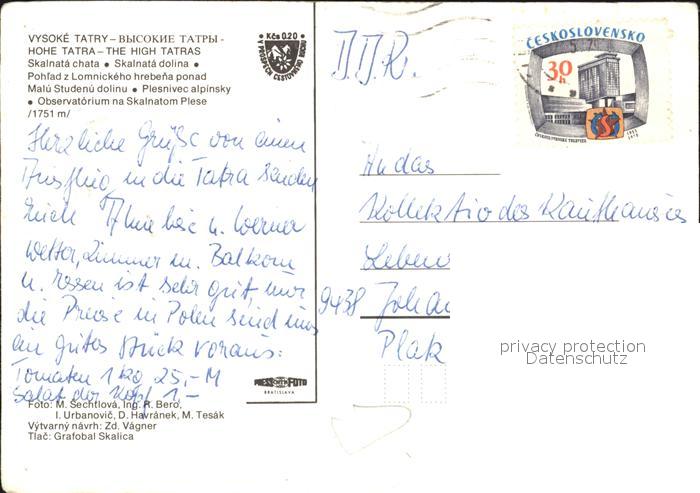 VYSOKÉ TATRY – ВЫСОКИЕ ТАТРЫ -
HOHE TATRA – THE HIGH TATRAS
Skalnatá chata • Skalnatá dolina •
Pohľad z Lomnického hrebeňa ponad
Malú Studenú dolinu • Plesnivec alpínsky
• Observatórium na Skalnatom Plese
/1751 m/
Kčs 0.20
V PROSPECH CESTOVNÉHO RUCHU
Herzliche Grüße von einem
Ausflug in die Tatra senden
Euch u. Werner
Wetter, Zimmer m. Balkon
u. Essen ist sehr gut, nur
die Preise in Polen sind uns
ein gutes Stück voraus:
Tomaten 1 kg 25,- M
Salat der Kopf 1,-
Foto: M. Šechtlová, Ing. R. Bero,
I. Urbanovič, D. Havránek, M. Tesák
Výtvarný návrh: Zd. Vágner
Tlač: Grafobal Skalica
PRESSFOTO
BRATISLAVA
D.D.R.
ČESKOSLOVENSKO
30 h
ČESKOSLOVENSKÁ TELEVIZE
An das
Kollektiv des Kaufhauses
9438
privacy protection
Datenschutz